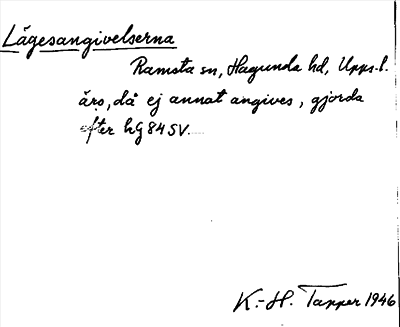 Lägesangivelserna
Ramsta sn, Hagunda hd, Upps. l.
är, då ej annat angives, gjorda
efter hG 84 SV.
K.-H. Tapper 1946